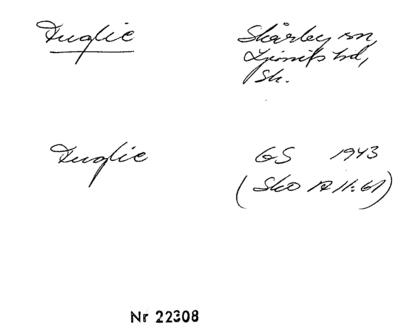 Fuglie Skårby sn,
Ljunits hd,
Sk.
Fuglie GS 1943
(SkO 11:61)
Nr 22308